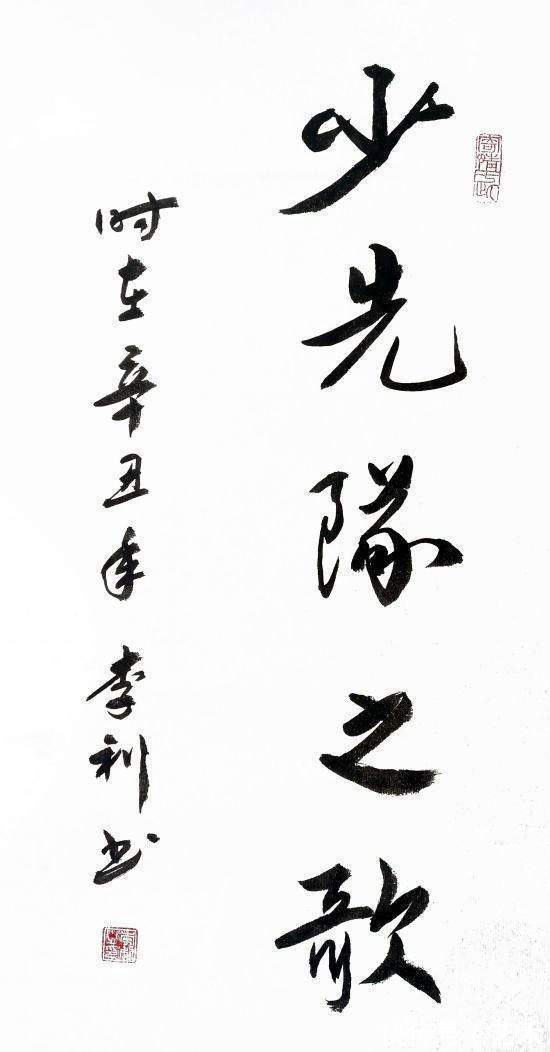 少先隊之歌
时在辛丑年 李利书